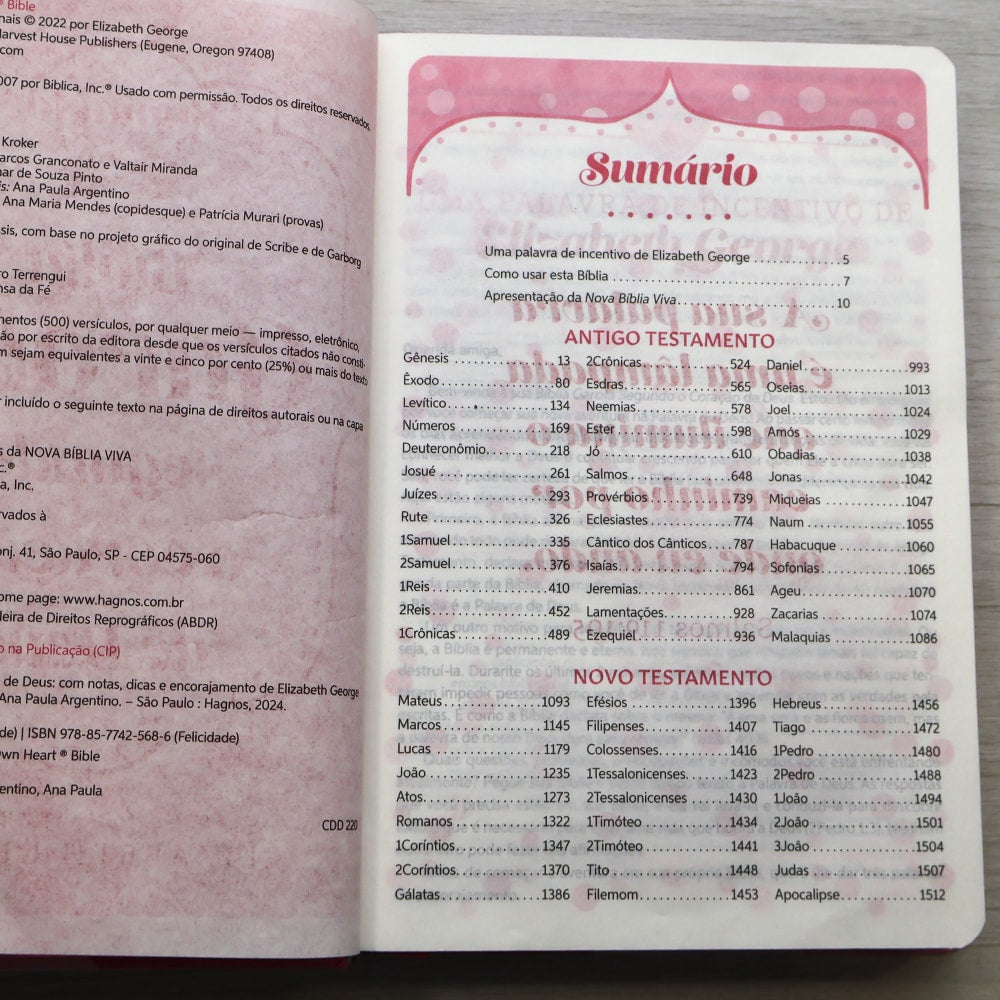 ® Bible
nais © 2022 por Elizabeth George
Harvest House Publishers (Eugene, Oregon 97408)
.com
007 por Biblica, Inc.® Usado com permissão. Todos os direitos reservados.
Kroker
Marcos Granconato e Valtair Miranda
mar de Souza Pinto
is: Ana Paula Argentino
Ana Maria Mendes (copidesque) e Patrícia Murari (provas)
ssis, com base no projeto gráfico do original de Scribe e de Garborg
ro Terrengui
nsa da Fé
mentos (500) versículos, por qualquer meio — impresso, eletrônico,
ão por escrito da editora desde que os versículos citados não consti-
m sejam equivalentes a vinte e cinco por cento (25%) ou mais do texto
r incluído o seguinte texto na página de direitos autorais ou na capa
s da NOVA BÍBLIA VIVA
c.®
a, Inc.
rvados à
onj. 41, São Paulo, SP - CEP 04575-060
ome page: www.hagnos.com.br
leira de Direitos Reprográficos (ABDR)
o na Publicação (CIP)
de Deus: com notas, dicas e encorajamento de Elizabeth George
Ana Paula Argentino. – São Paulo : Hagnos, 2024.
de) | ISBN 978-85-7742-568-6 (Felicidade)
Own Heart ® Bible
entino, Ana Paula
CDD 220
Sumário
Uma palavra de incentivo de Elizabeth George 5
Como usar esta Bíblia 7
Apresentação da Nova Bíblia Viva 10
ANTIGO TESTAMENTO
Gênesis 13
Êxodo 80
Levítico 134
Números 169
Deuteronômio 218
Josué 261
Juízes 293
Rute 326
1Samuel 335
2Samuel 376
1Reis 410
2Reis 452
1Crônicas 489
2Crônicas 524
Esdras 565
Neemias 578
Ester 598
Jó 610
Salmos 648
Provérbios 739
Eclesiastes 774
Cântico dos Cânticos 787
Isaías 794
Jeremias 861
Lamentações 928
Ezequiel 936
Daniel 993
Oseias 1013
Joel 1024
Amós 1029
Obadias 1038
Jonas 1042
Miqueias 1047
Naum 1055
Habacuque 1060
Sofonias 1065
Ageu 1070
Zacarias 1074
Malaquias 1086
NOVO TESTAMENTO
Mateus 1093
Marcos 1145
Lucas 1179
João 1235
Atos 1273
Romanos 1322
1Coríntios 1347
2Coríntios 1370
Gálatas 1386
Efésios 1396
Filipenses 1407
Colossenses 1416
1Tessalonicenses 1423
2Tessalonicenses 1430
1Timóteo 1434
2Timóteo 1441
Tito 1448
Filemom 1453
Hebreus 1456
Tiago 1472
1Pedro 1480
2Pedro 1488
1João 1494
2João 1501
3João 1504
Judas 1507
Apocalipse 1512